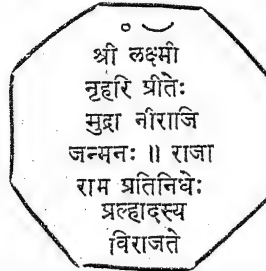 श्री लक्ष्मी
नृहरि प्रीतेः
मुद्रा नीराजि
जन्मनः ॥ राजा
राम प्रतिनिधेः
प्रल्हादस्य
विराजते